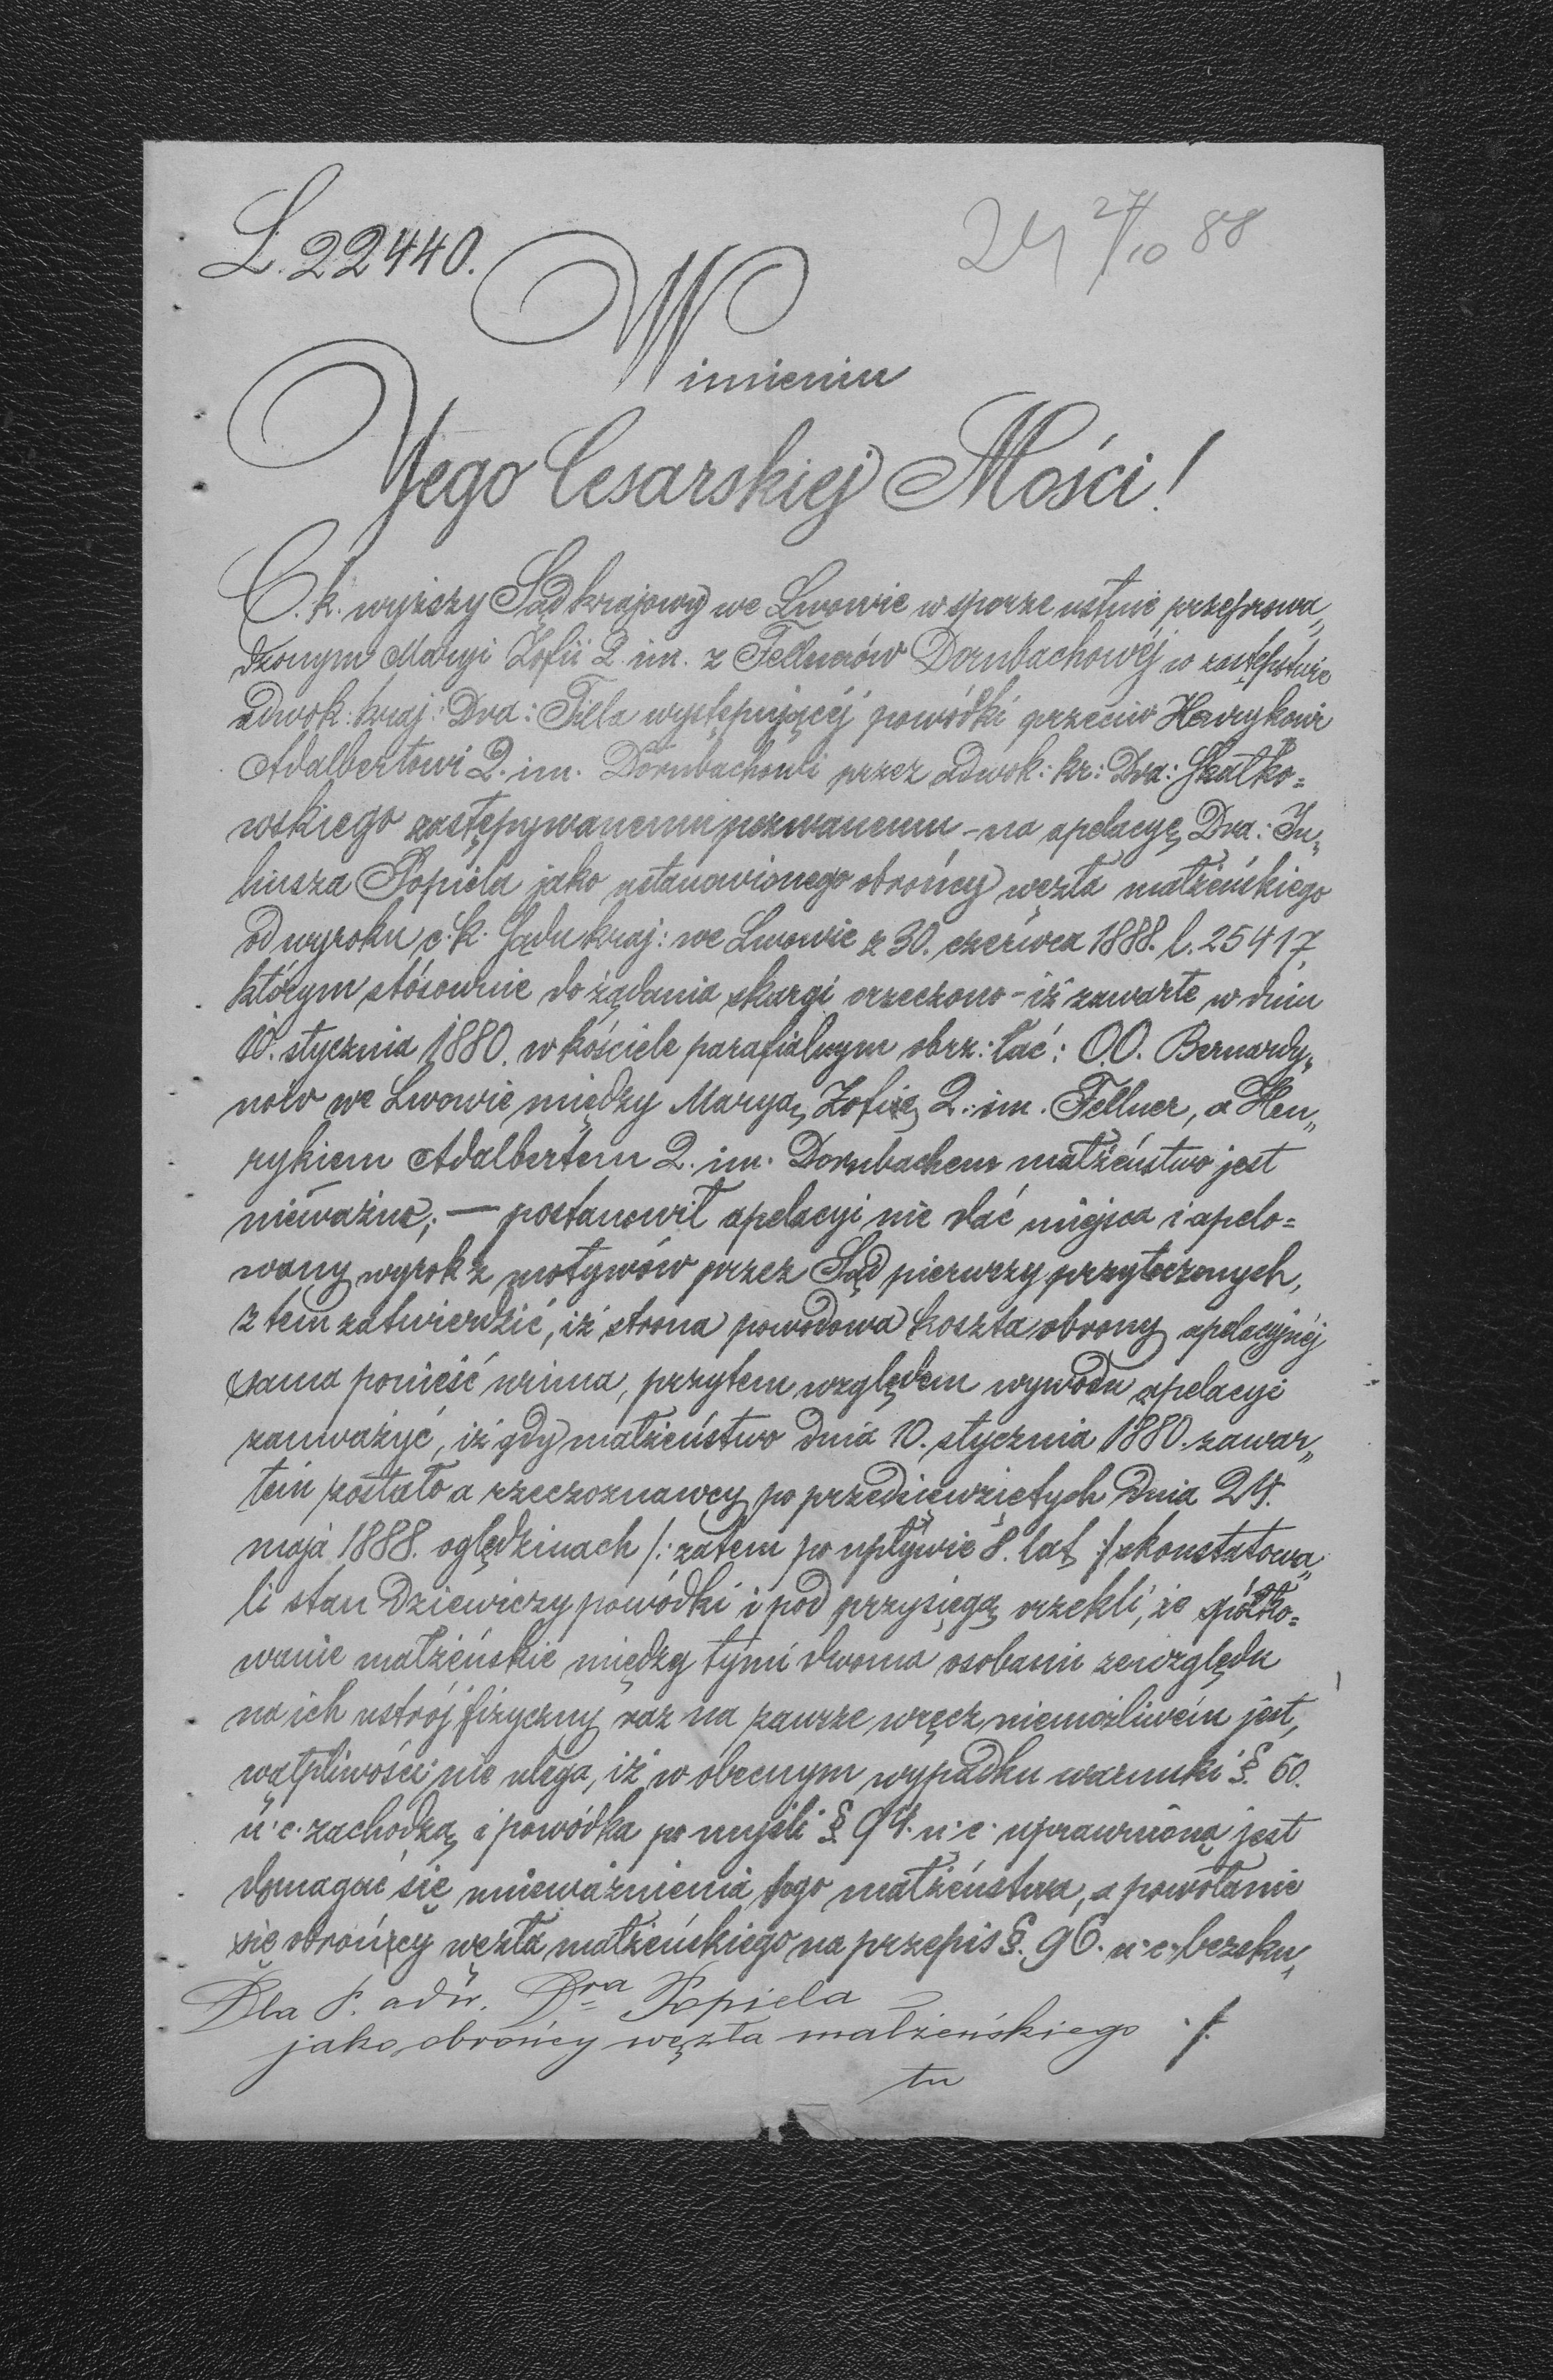 L. 22440.
24 27/10 88
W
imieniu
Jego Cesarskiej Mości!
C. k. wyższy Sąd krajowy we Lwowie w sporze ustnie przeprowa„
dzonym Maryi Zofii 2. im. z Fellnerów Dornbachowéj w zastępstwie
adwok: kraj: Dra: Tilla występującéj powódki przeciw Henrykowi
Adalbertowi 2. im. Dornbachowi przez adwok: kr: Dra: Skałko=
wskiego zastępywanemu pozwanemu – na apelacyę Dra: Ju„
liusza Popiela jako ustanowionego obrońcy węzła małżeńskiego
od wyroku c. k. Sądu kraj: we Lwowie z 30. czerwca 1888. l. 25417,
którym stósownie do żądania skargi orzeczono – iż zawarte w dniu
10. stycznia 1880. w kościele parafialnym obrz: łać: OO. Bernardy„
nów we Lwowie między Maryą Zofią 2. im. Fellner, a Hen„
rykiem Adalbertem 2. im. Dornbachem małżeństwo jest
nieważne; — postanowił apelacyi nie dać miejsca i apelo=
wany wyrok z motywów przez Sąd pierwszy przytoczonych,
z tem zatwierdzić, iż strona powodowa koszta obrony apelacyjnéj
sama ponieść winna, przytem względem wywodu apelacyi
zauważyć, iż gdy małżeństwo dnia 10. stycznia 1880. zawar„
tém zostało a rzeczoznawcy po przedsięwziętych dnia 24.
maja 1888. oględzinach /: zatem po upływie 8. lat :/ skonstatowa„
li stan dziewiczy powódki i pod przysięgą orzekli, że spółko=
wanie małżeńskie między tymi dwoma osobami ze względu
na ich ustrój fizyczny raz na zawsze wręcz niemożliwém jest,
wątpliwości nie ulega, iż w obecnym wypadku warunki §. 60.
u. c. zachodzą i powódka po myśli §. 94. u. c. uprawnioną jest
domagać się unieważnienia tego małżeństwa, a powołanie
się obrońcy węzła małżeńskiego na przepis §. 96. u. c. bezsku„
Dla P. adw. Dra Popiela
jako obrońcy węzła małżeńskiego ./.
tu